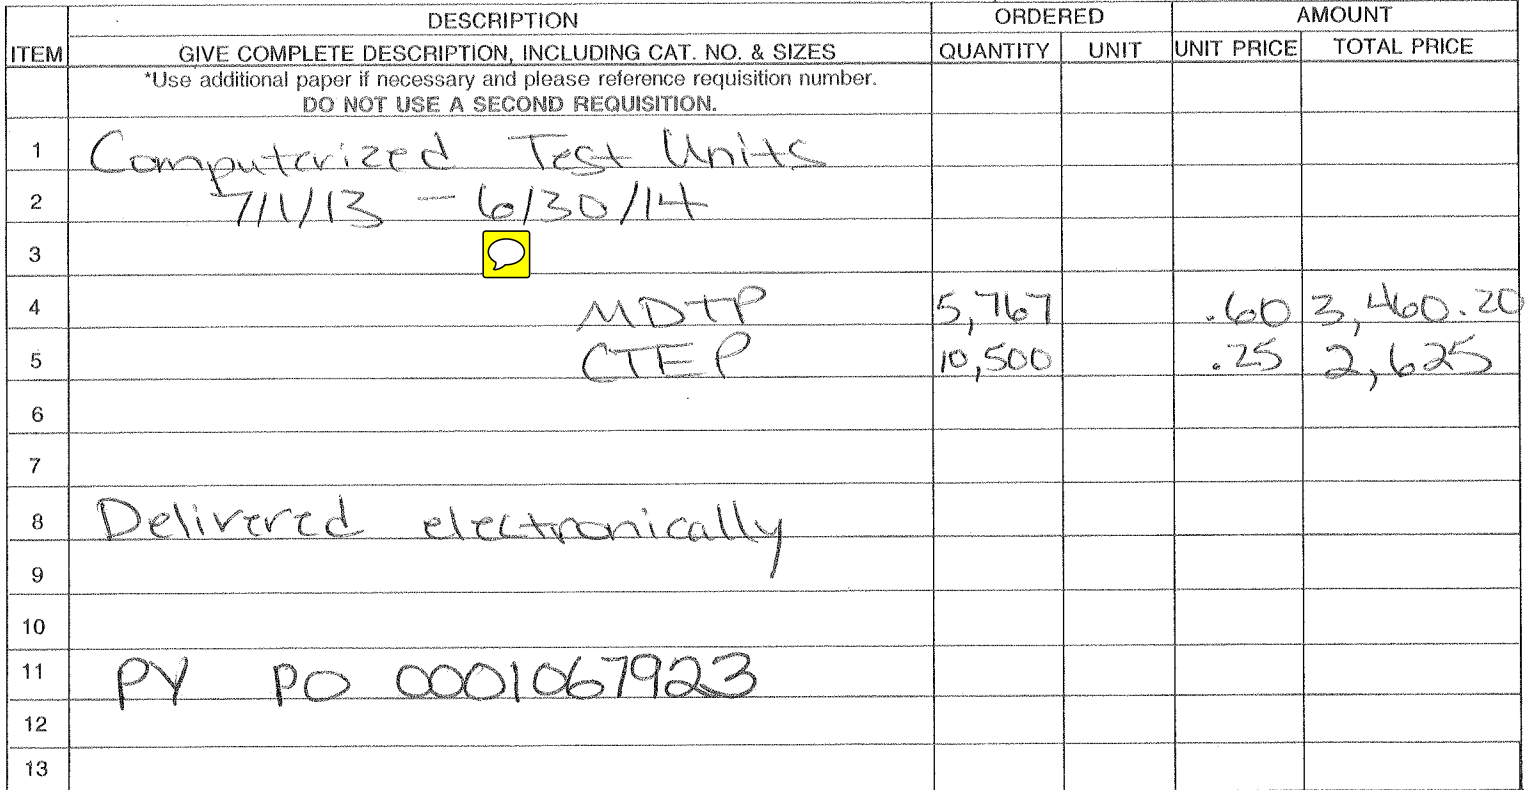 DESCRIPTION ORDERED AMOUNT
ITEM GIVE COMPLETE DESCRIPTION, INCLUDING CAT. NO. & SIZES QUANTITY UNIT UNIT PRICE TOTAL PRICE
*Use additional paper if necessary and please reference requisition number.
DO NOT USE A SECOND REQUISITION.
1 Computerized Test Units
2 7/1/13 - 6/30/14
3
4 MDTP 5,767 .60 3,460.20
5 CTEP 10,500 .25 2,625
6
7
8 Delivered electronically
9
10
11 PY PO 0001067923
12
13